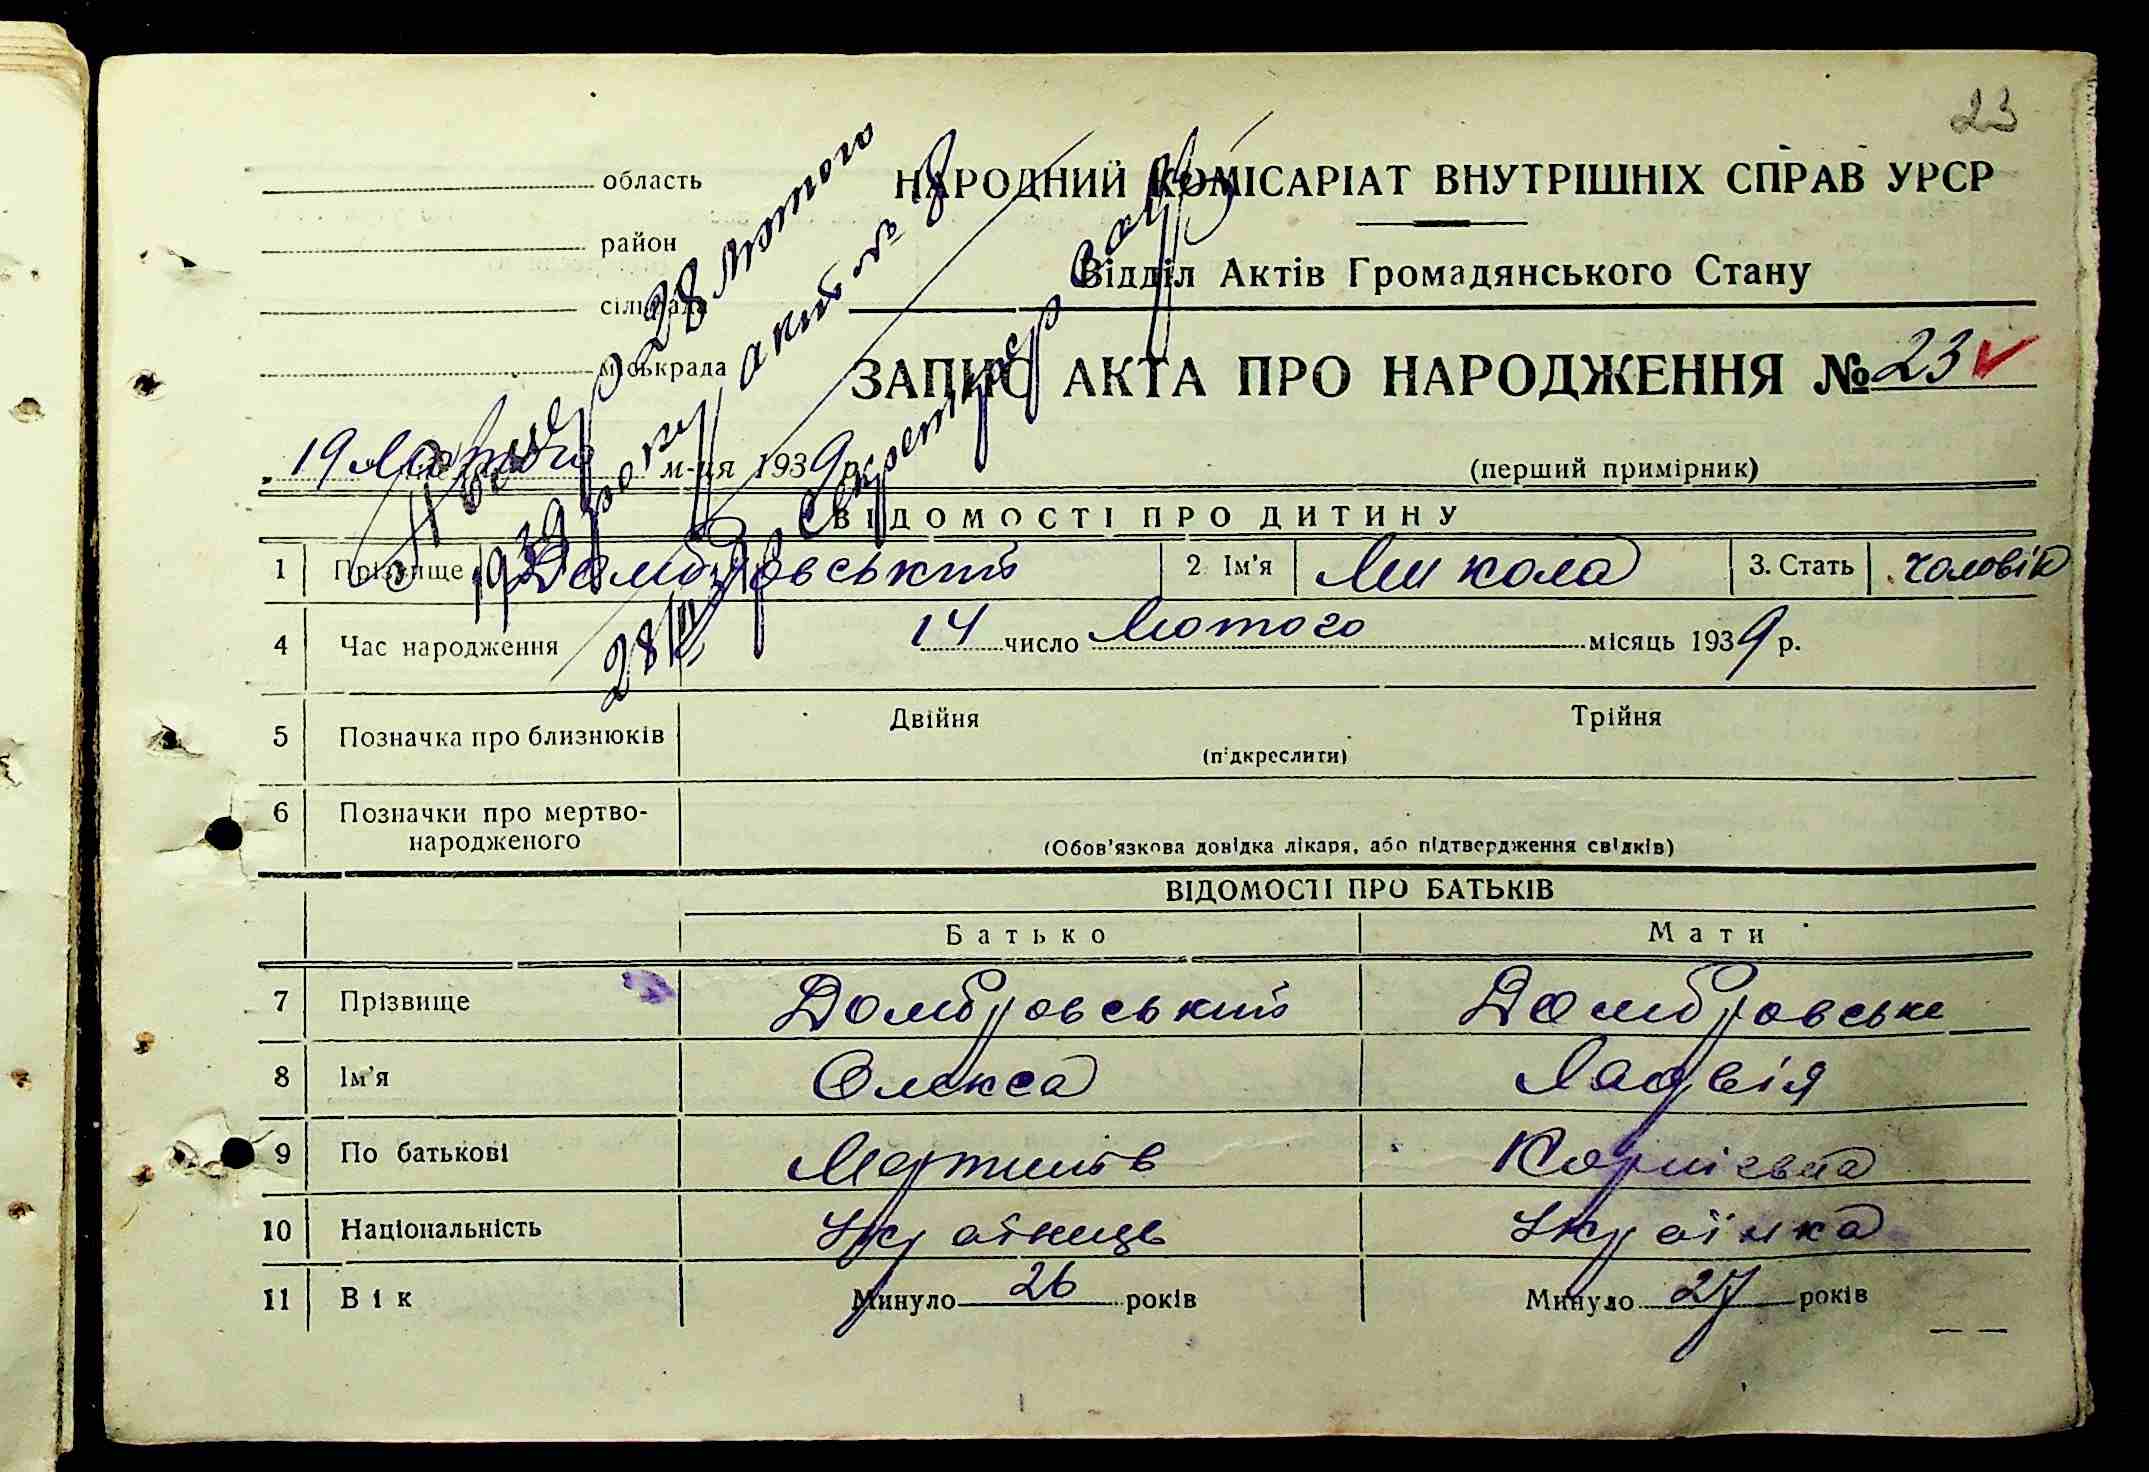 23
область
НАРОДНИЙ КОМІСАРІАТ ВНУТРІШНІХ СПРАВ УРСР
район
Відділ Актів Громадянського Стану
сільрада
міськрада
ЗАПИС АКТА ПРО НАРОДЖЕННЯ № 23
19 Лютого м-ця 1939 р.
(перший примірник)
Помер 28 Лютого
1939 року акт № 8
28/II 39 р Секретар
ВІДОМОСТІ ПРО ДИТИНУ
1 Прізвище Домбровський 2 Ім'я Микола 3. Стать чоловік
4 Час народження 14 число Лютого місяць 1939 р.
5 Позначка про близнюків Двійня Трійня
(підкреслити)
6 Позначки про мертво-
народженого
(Обов'язкова довідка лікаря, або підтвердження свідків)
ВІДОМОСТІ ПРО БАТЬКІВ
Батько Мати
7 Прізвище Домбровський Домбровська
8 Ім'я Олекса Ядвія
9 По батькові Мартинів Корнієвна
10 Національність Українець Українка
11 Вік Минуло 26 років Минуло 27 років